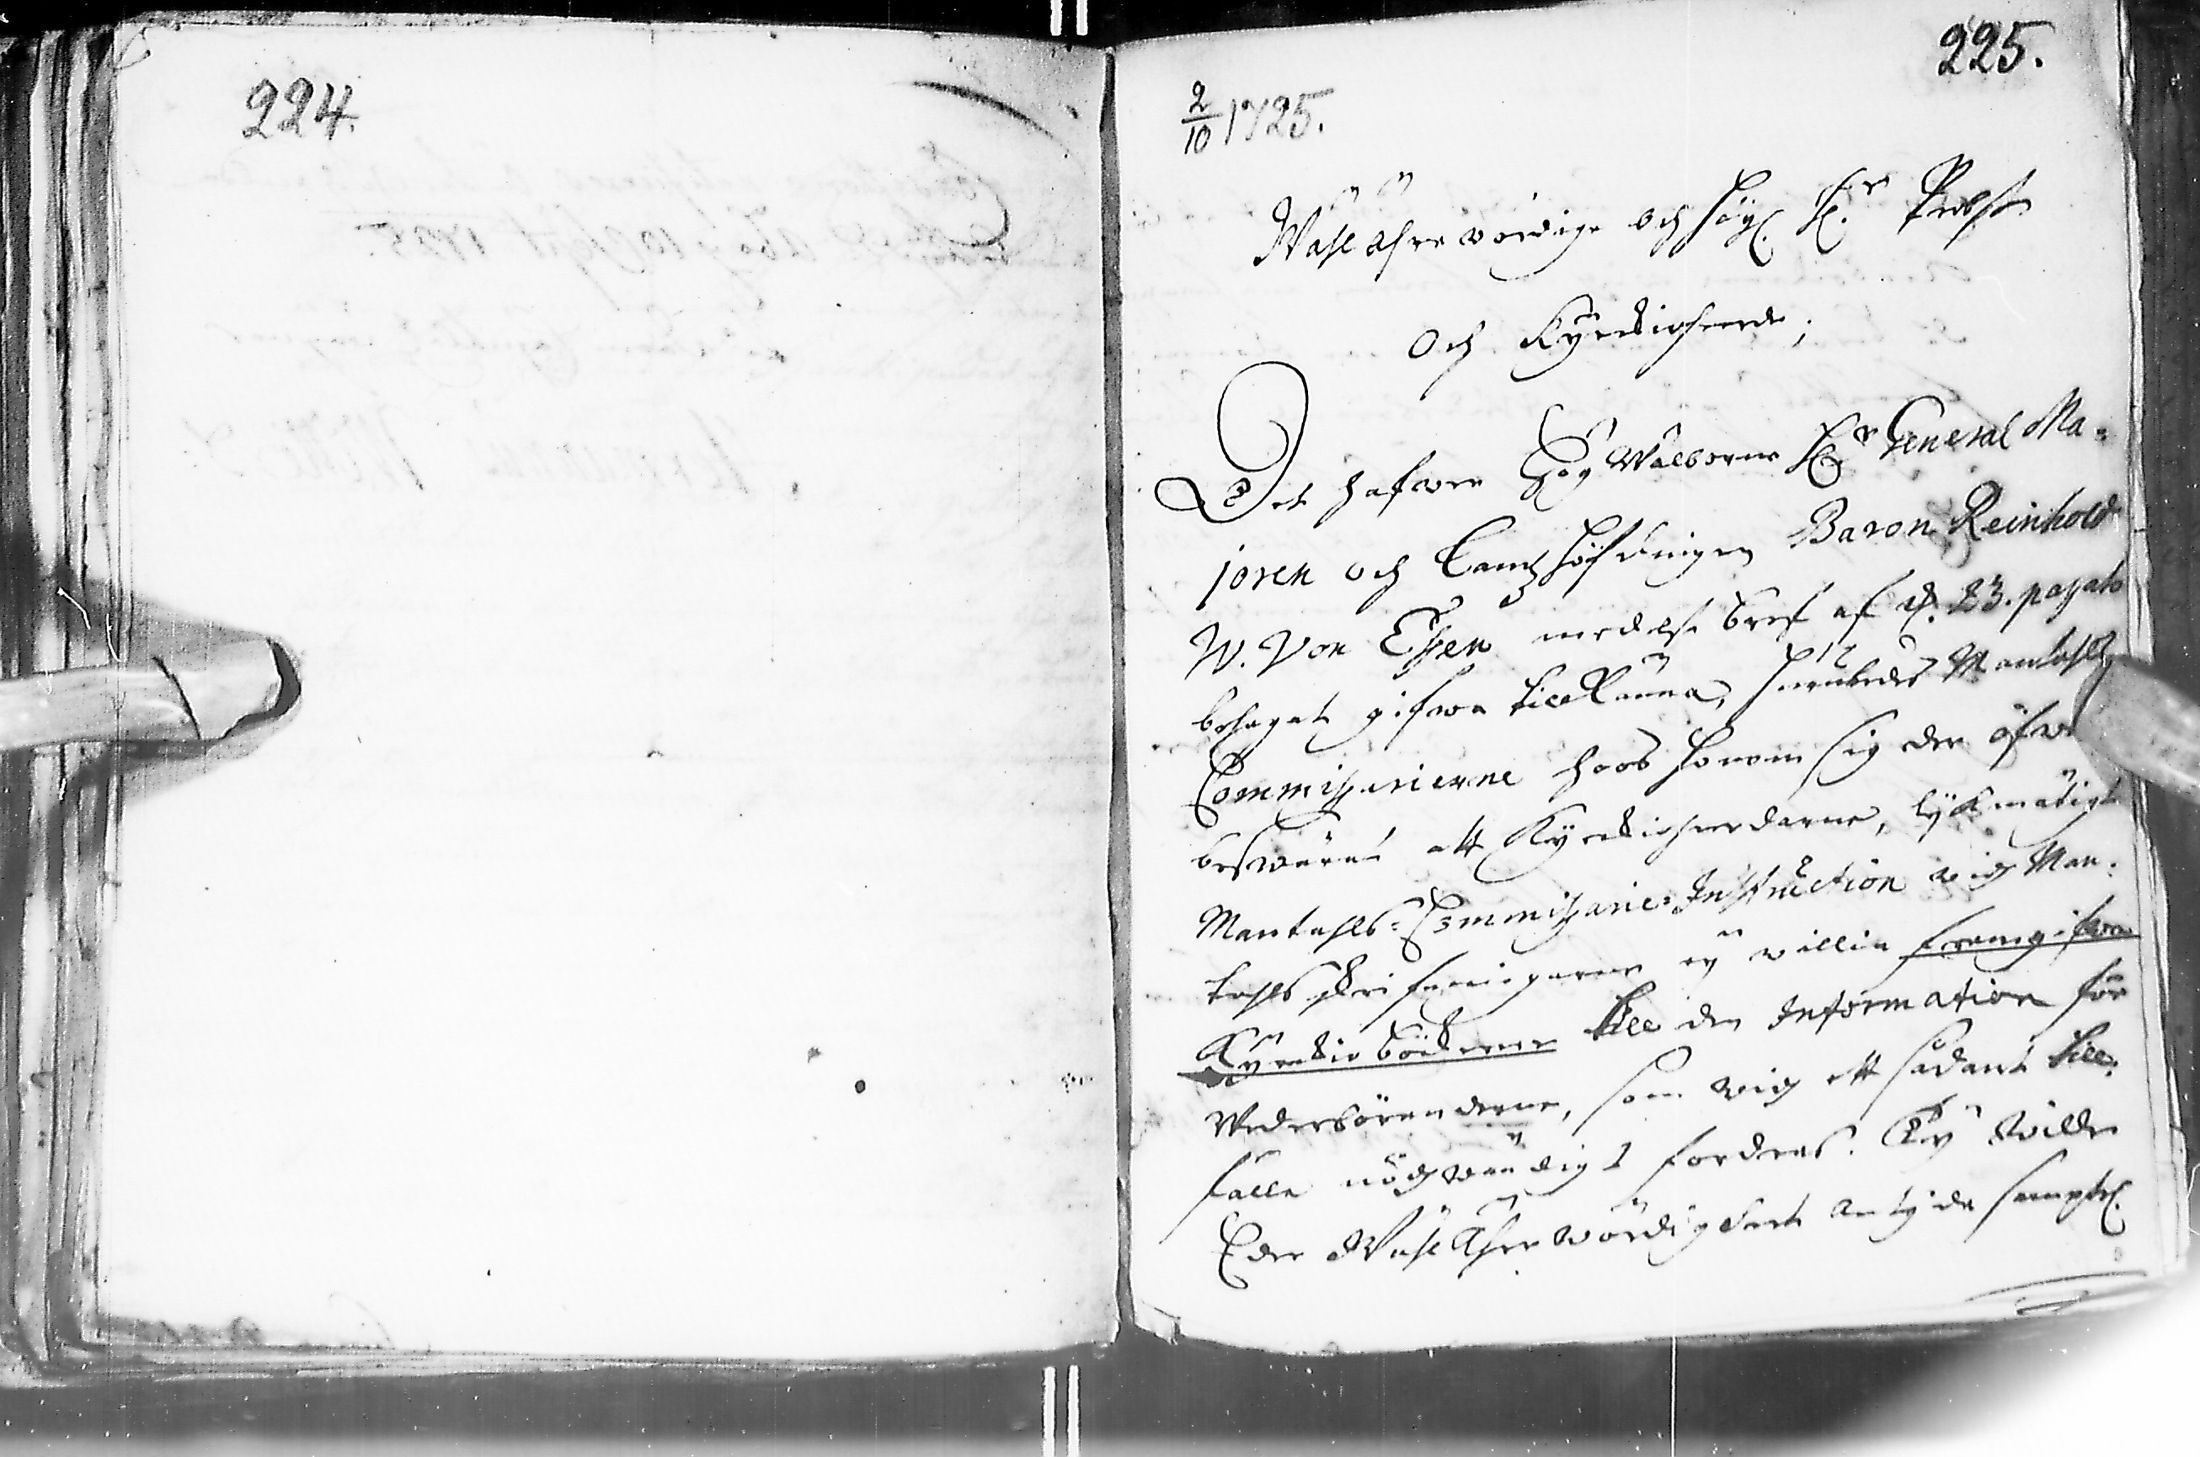 224.
225.
2/10 1725.
Wähl Ehrewördige och Höyl. H:r Probst
och Kyrckioherde;
Det hafwer Högwälborne H:r General Ma-
joren och Landzhöfdingen Baron Reinhold
W. Von Essen medelst bref af d. 23. passato
behagat gifwa tillkänna, huruledes Mantahls
Commissarierne hoos honom sig der öfwer
beswärat att Kyrckioherdarne, lykmätigt
Mantahls-Commissarie-Instruction wid Man-
tahls skrifningarne ey willia framgifwa
Kyrckioböckerne till den Information för
Wederböranderne, som wid ett sådant till-
fälle nödwändigt fordras. Ty wille
Eder Wähl Ehrewördighet antyda sampt.